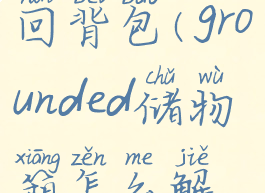 回背包(gro
chǔ wù
unded储物
xiāng zěn me jiě
箱怎么解